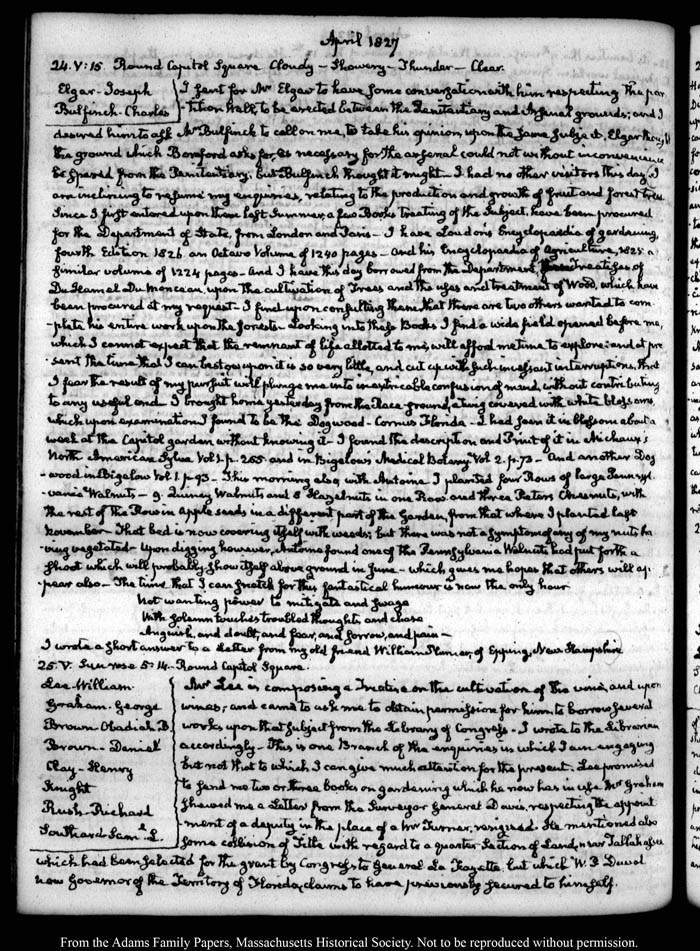 April 1827
24. V: 15. Round Capitol Square Cloudy - Showery - Thunder - Clear.
Elgar - Joseph
Bulfinch - Charles
I sent for Mr Elgar to have some conversation with him respecting the par
tition Wall, to be erected between the Penitentiary and Arsenal grounds; and I
desired him to ask Mr Bulfinch to call on me, to take his opinion upon the same subject. Elgar thought
the ground which Bomford asks for, as necessary for the arsenal could not without inconvenience
be spared from the Penitentiary; but Bulfinch thought it might - I had no other visitors this day. I
am inclining to resume my enquiries, relating to the production and growth of fruit and forest trees.
Since I first entered upon them last Summer, a few Books treating of the Subject, have been procured
for the Department of State, from London and Paris - I have Loudon's Encyclopaedia of gardening
fourth Edition 1826. an Octavo Volume of 1240 pages - And his Encyclopaedia of Agriculture, 1825 a
similar volume of 1224 pages - And I have this day borrowed from the Department, Treatises of
Du Hamel Du Monceau, upon the cultivation of Trees and the uses and treatment of Wood, which have
been procured at my request - I find upon consulting them that there are two others wanted to com
-plete his entire work upon the forests - Looking into these Books I find a wide field opened before me,
which I cannot expect that the remnant of life allotted to me, will afford me time to explore: and at pre
-sent the time that I can bestow upon it is so very little, and cut up with such incessant interruptions, that
I fear the result of my pursuit will plunge me into inextricable confusion of mind, without contributing
to any useful end - I brought home yesterday from the Race ground, a twig covered with white blossoms,
which upon examination I found to be the Dogwood - Cornus Florida - I had seen it in blossom about a
week at the Capitol garden without knowing it - I found the description and Print of it in Michaux's
North American Sylva Vol 1. p. 255 and in Bigelow's Medical Botany Vol 2. p. 73 - And another Dog
-wood in Bigelow Vol. 1. p. 93 - This morning also, with Antoine I planted four Rows of large Pennsyl
-vania Walnuts - 9 Quincy Walnuts and 8 Hazelnuts in one Row and three Chesnuts, with
the rest of the Row in apple seeds in a different part of the Garden, from that where I planted last
November - That bed is now covering itself with weeds; but there was not a symptom of any of my nuts ha
ving vegetated - Upon digging however, Antoine found one of the Pennsylvania Walnuts had put forth a
shoot which will probably show itself above ground in June - which gives me hopes that others will ap
-pear also - The time that I can snatch for this fantastical humour is now the only hour
Not wanting power to mitigate and swage
With solemn touches troubled thoughts, and chase
Anguish, and doubt, and fear, and sorrow, and pain -
I wrote a short answer to a Letter from my old friend William Plumer, of Epping, New Hampshire
25. V. Sun rose 5:14. Round Capitol Square.
Lee - William
Graham - George
Brown - Obadiah B.
Brown - Daniel
Clay - Henry
Knight
Rush - Richard
Southard Saml. L.
Mr Lee is composing a Treatise on the cultivation of the vine, and upon
wines; and came to ask me to obtain permission for him to borrow several
works upon that subject from the Library of Congress - I wrote to the Librarian
accordingly - This is one Branch of the enquiries in which I am engaging
but not that to which I can give much attention for the present. Lee promised
to send me two or three books on gardening which he now has in use. Mr Graham
shewed me a Letter from the Surveyor General Davis, respecting the appoint
-ment of a deputy in the place of a Mr Turner, resigned. He mentioned also
some collision of Title with regard to a quarter Section of Land, near Tallahassee
which had been selected for the grant by Congress to General La Fayette, but which W. P. Duval
now Governor of the Territory of Florida, claims to have previously secured to himself.
From the Adams Family Papers, Massachusetts Historical Society. Not to be reproduced without permission.